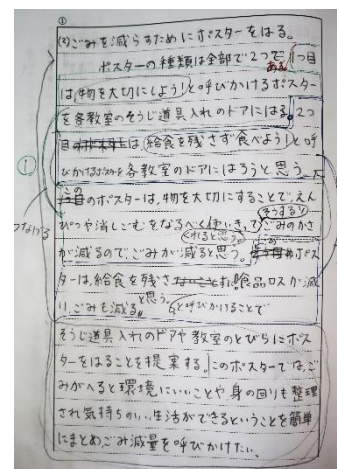 ①
(2)ごみを減らすためにポスターをはる。
ポスターの種類は全部で2つで ある。1つ目
は「物を大切にしよう」と呼びかけるポスター
を各教室のそうじ道具入れのドアにはる。2つ
目は「給食を残さず食べよう」と呼
びかけるポスターを各教室のドアにはろうと思う。
この
のポスターは、物を大切にすることで、えん
そうすると
ぴつや消しごむをなるべく ごみのかさ
が減るのでごみが減ると思う。 ポス
ターは、給食を残さず 食品ロスが減
り、ごみも減る と思う。
と呼びかけることで
①
つなげる
そうじ道具入れのドアや教室のとびらにポス
ターをはることを提案する。このポスターでは、ご
みがへると環境にいいことや身の回りも整理
され気持ちのいい生活ができるということを簡単
にまとめ、ごみ減量を呼びかけたい。